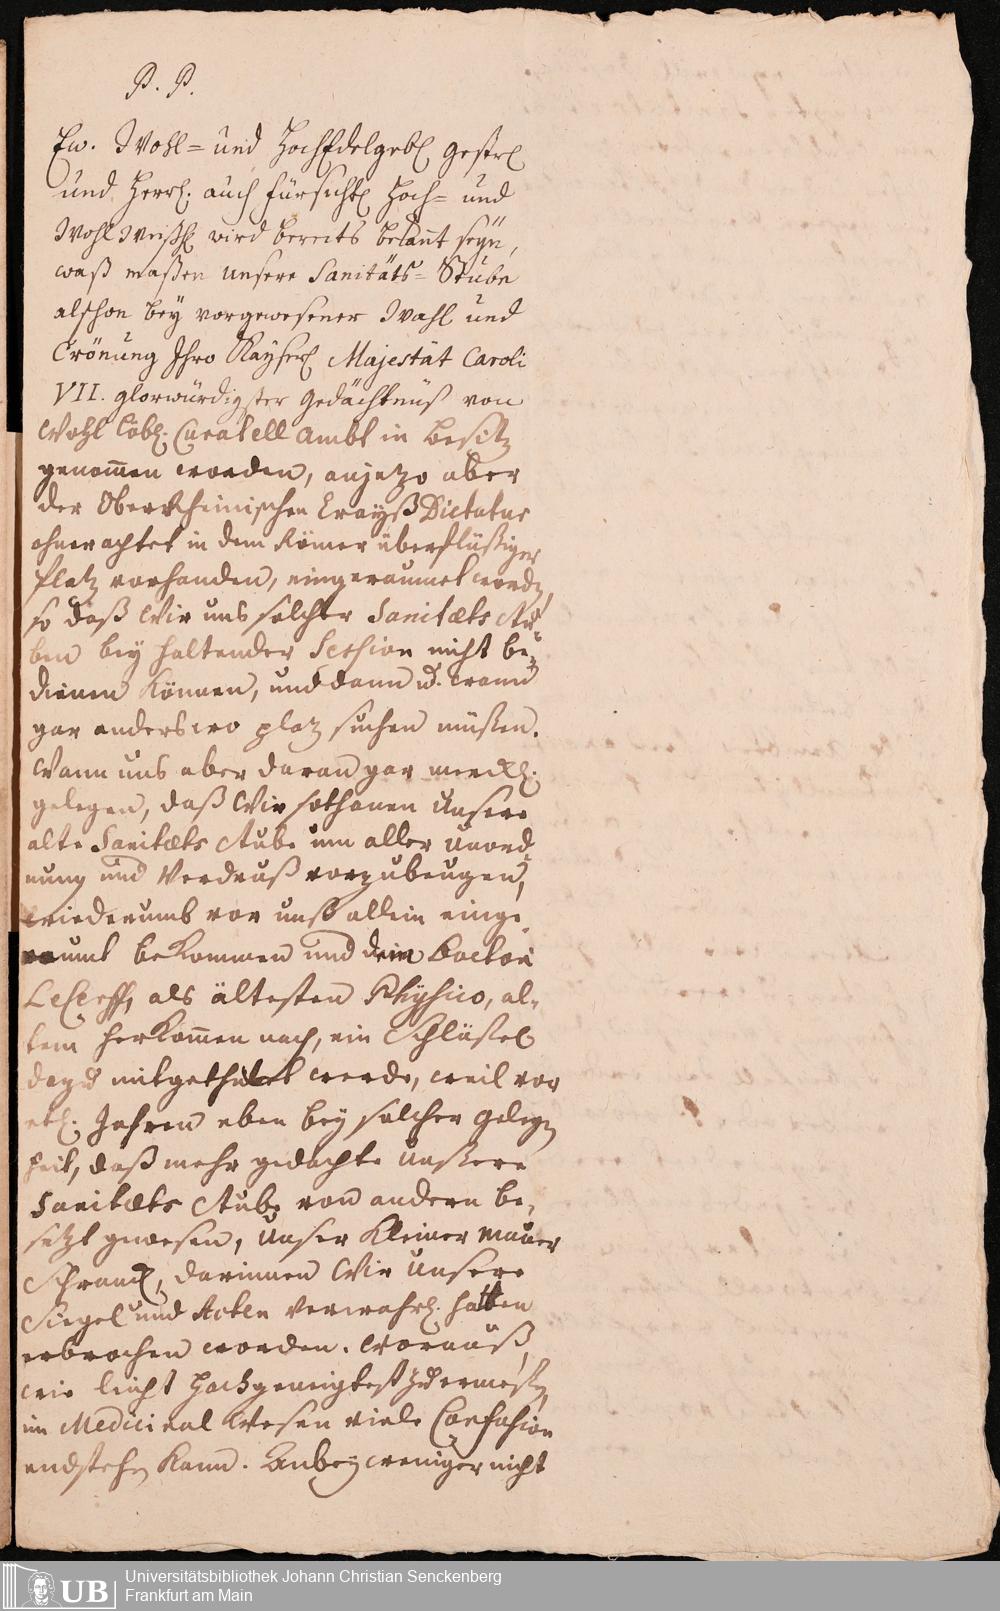 P. P.
Ew. Wohl= und HochEdelgebl. gestrl.
und Herrl. auch fürsichtl. Hoch= und
WohlWeißhl. wird bereits bekannt seyn,
waß maßen unsere Sanitäts=Stube
alschon bey vorgewesener Wahl und
Crönung Ihro Kayserl. Majestät Caroli
VII. glorwürdigster Gedächtnüß von
Wohl Löbl. Curatell Ambt in besitz
genommen worden, anjezo aber
der Oberrheinischen Crayß Dictatur
ohnerachtet in dem Römer überflüßiger
Platz vorhanden, eingeraumet worden,
so daß Wir uns solcher Sanitæts Stu=
ben bey haltender Session nicht be=
dienen können, und dann u. wann
gar anderswo platz suchen müßen.
Wann uns aber daran gar merckl.
gelegen, daß Wir sothanen Unsere
alte Sanitæts Stube um aller Unord=
nung und Verdruß vorzubeugen,
wiederumb vor unß allein einge=
raumt bekommen und dem Doctori
LeCerff, als ältesten Physico, al=
tem herkommen nach, ein Schlüßel
dazu mitgetheilet werde, weil vor
etl. Jahren eben bey solcher Gelegen
heit, daß mehr gedachte Unßere
Sanitæts Stube von andern be=
setzt gewesen, Unser Kleiner Mauer
Schranck, darinnen Wir Unsere
Siegel und Acten verwahrl. hatten
erbrochen worden. Worauß,
wie leicht Hochgeneigtest zu ermeßen,
im Medicinal Wesen viele Confusion
endstehen kann. Anbey weniger nicht
UB
Universitätsbibliothek Johann Christian Senckenberg
Frankfurt am Main